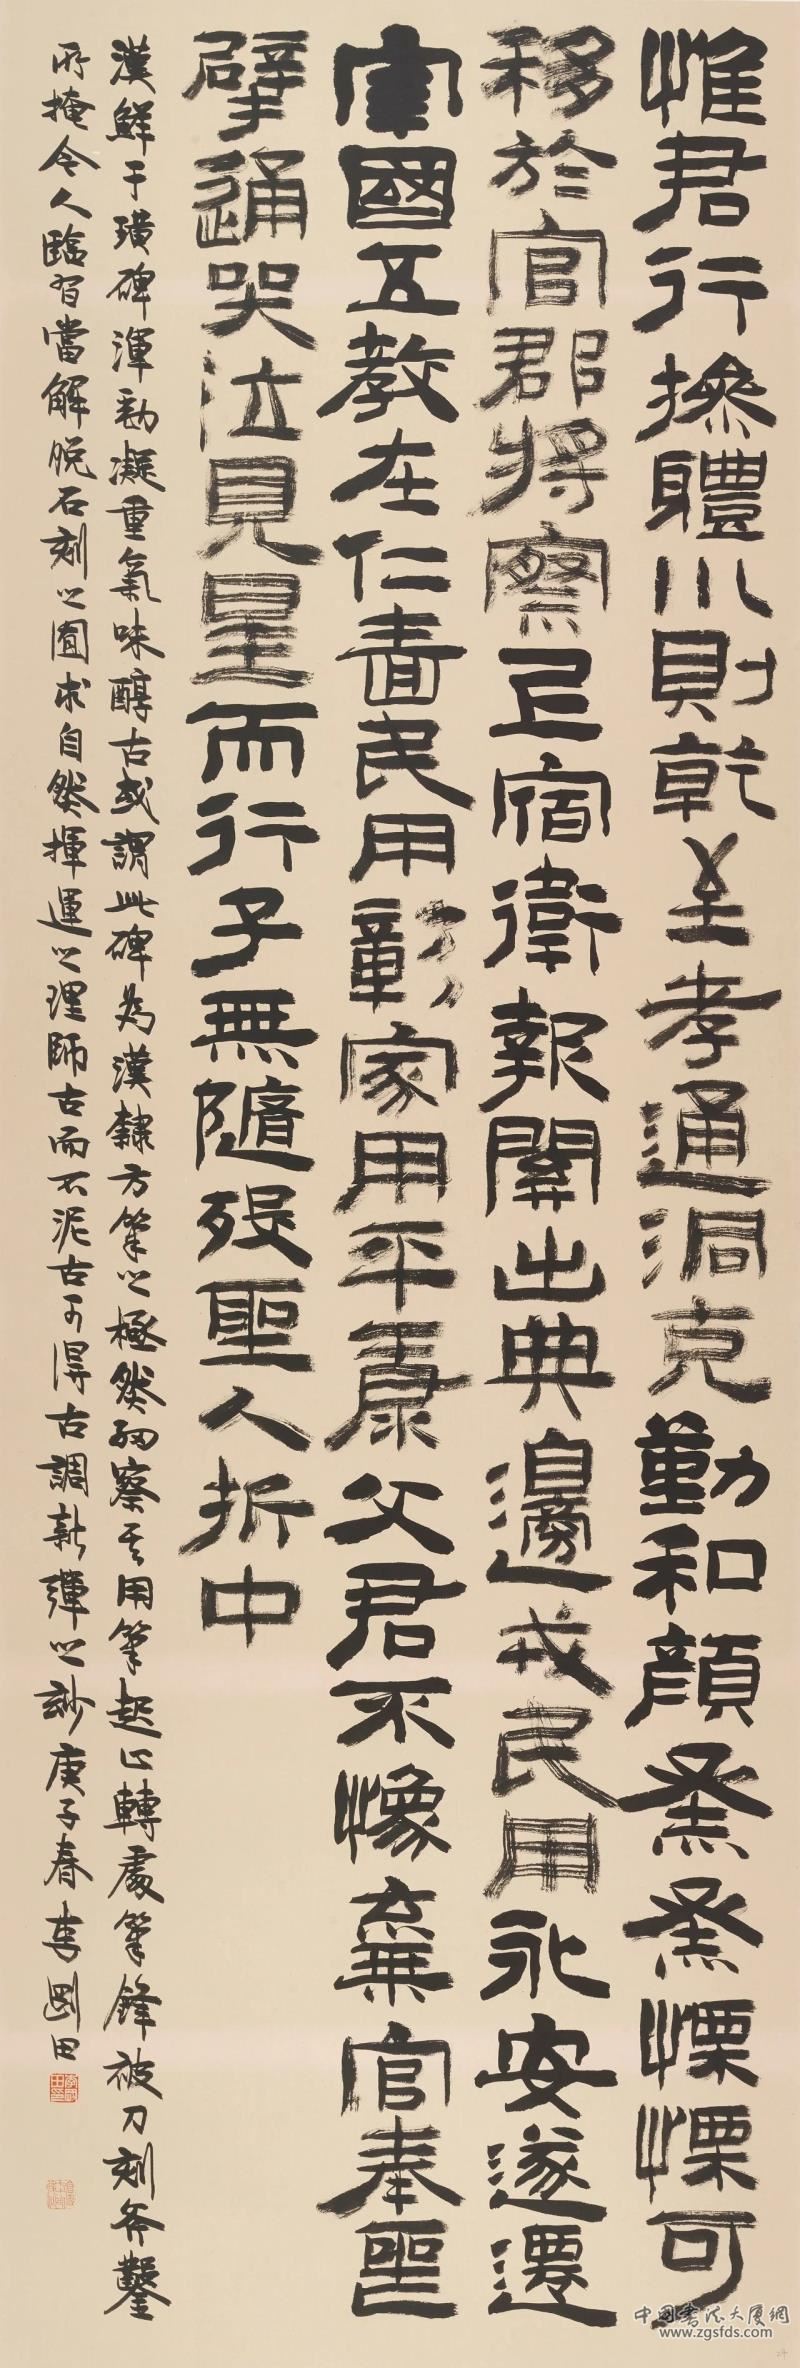 惟君行操體川則乾至孝通洞克勤和顏烝烝慄慄可
移於官郡將察廷宿衛報關出典邊戎民用永安遂遷
宰國五教在仁嗇民用彰家用平康父君不豫棄官奉喪
擘踊哭泣見星而行子無隨歿聖人折中
漢鮮于璜碑渾勁凝重氣味醇古或謂此碑為漢隸方筆之極然細察其用筆起止轉處筆鋒被刀刻斧鑿
所掩令人臨習當解脫石刻之囿求自然揮運之理師古而不泥古可得古調新彈之妙庚子春李剛田
中国书法大厦網
www.zgsfds.com